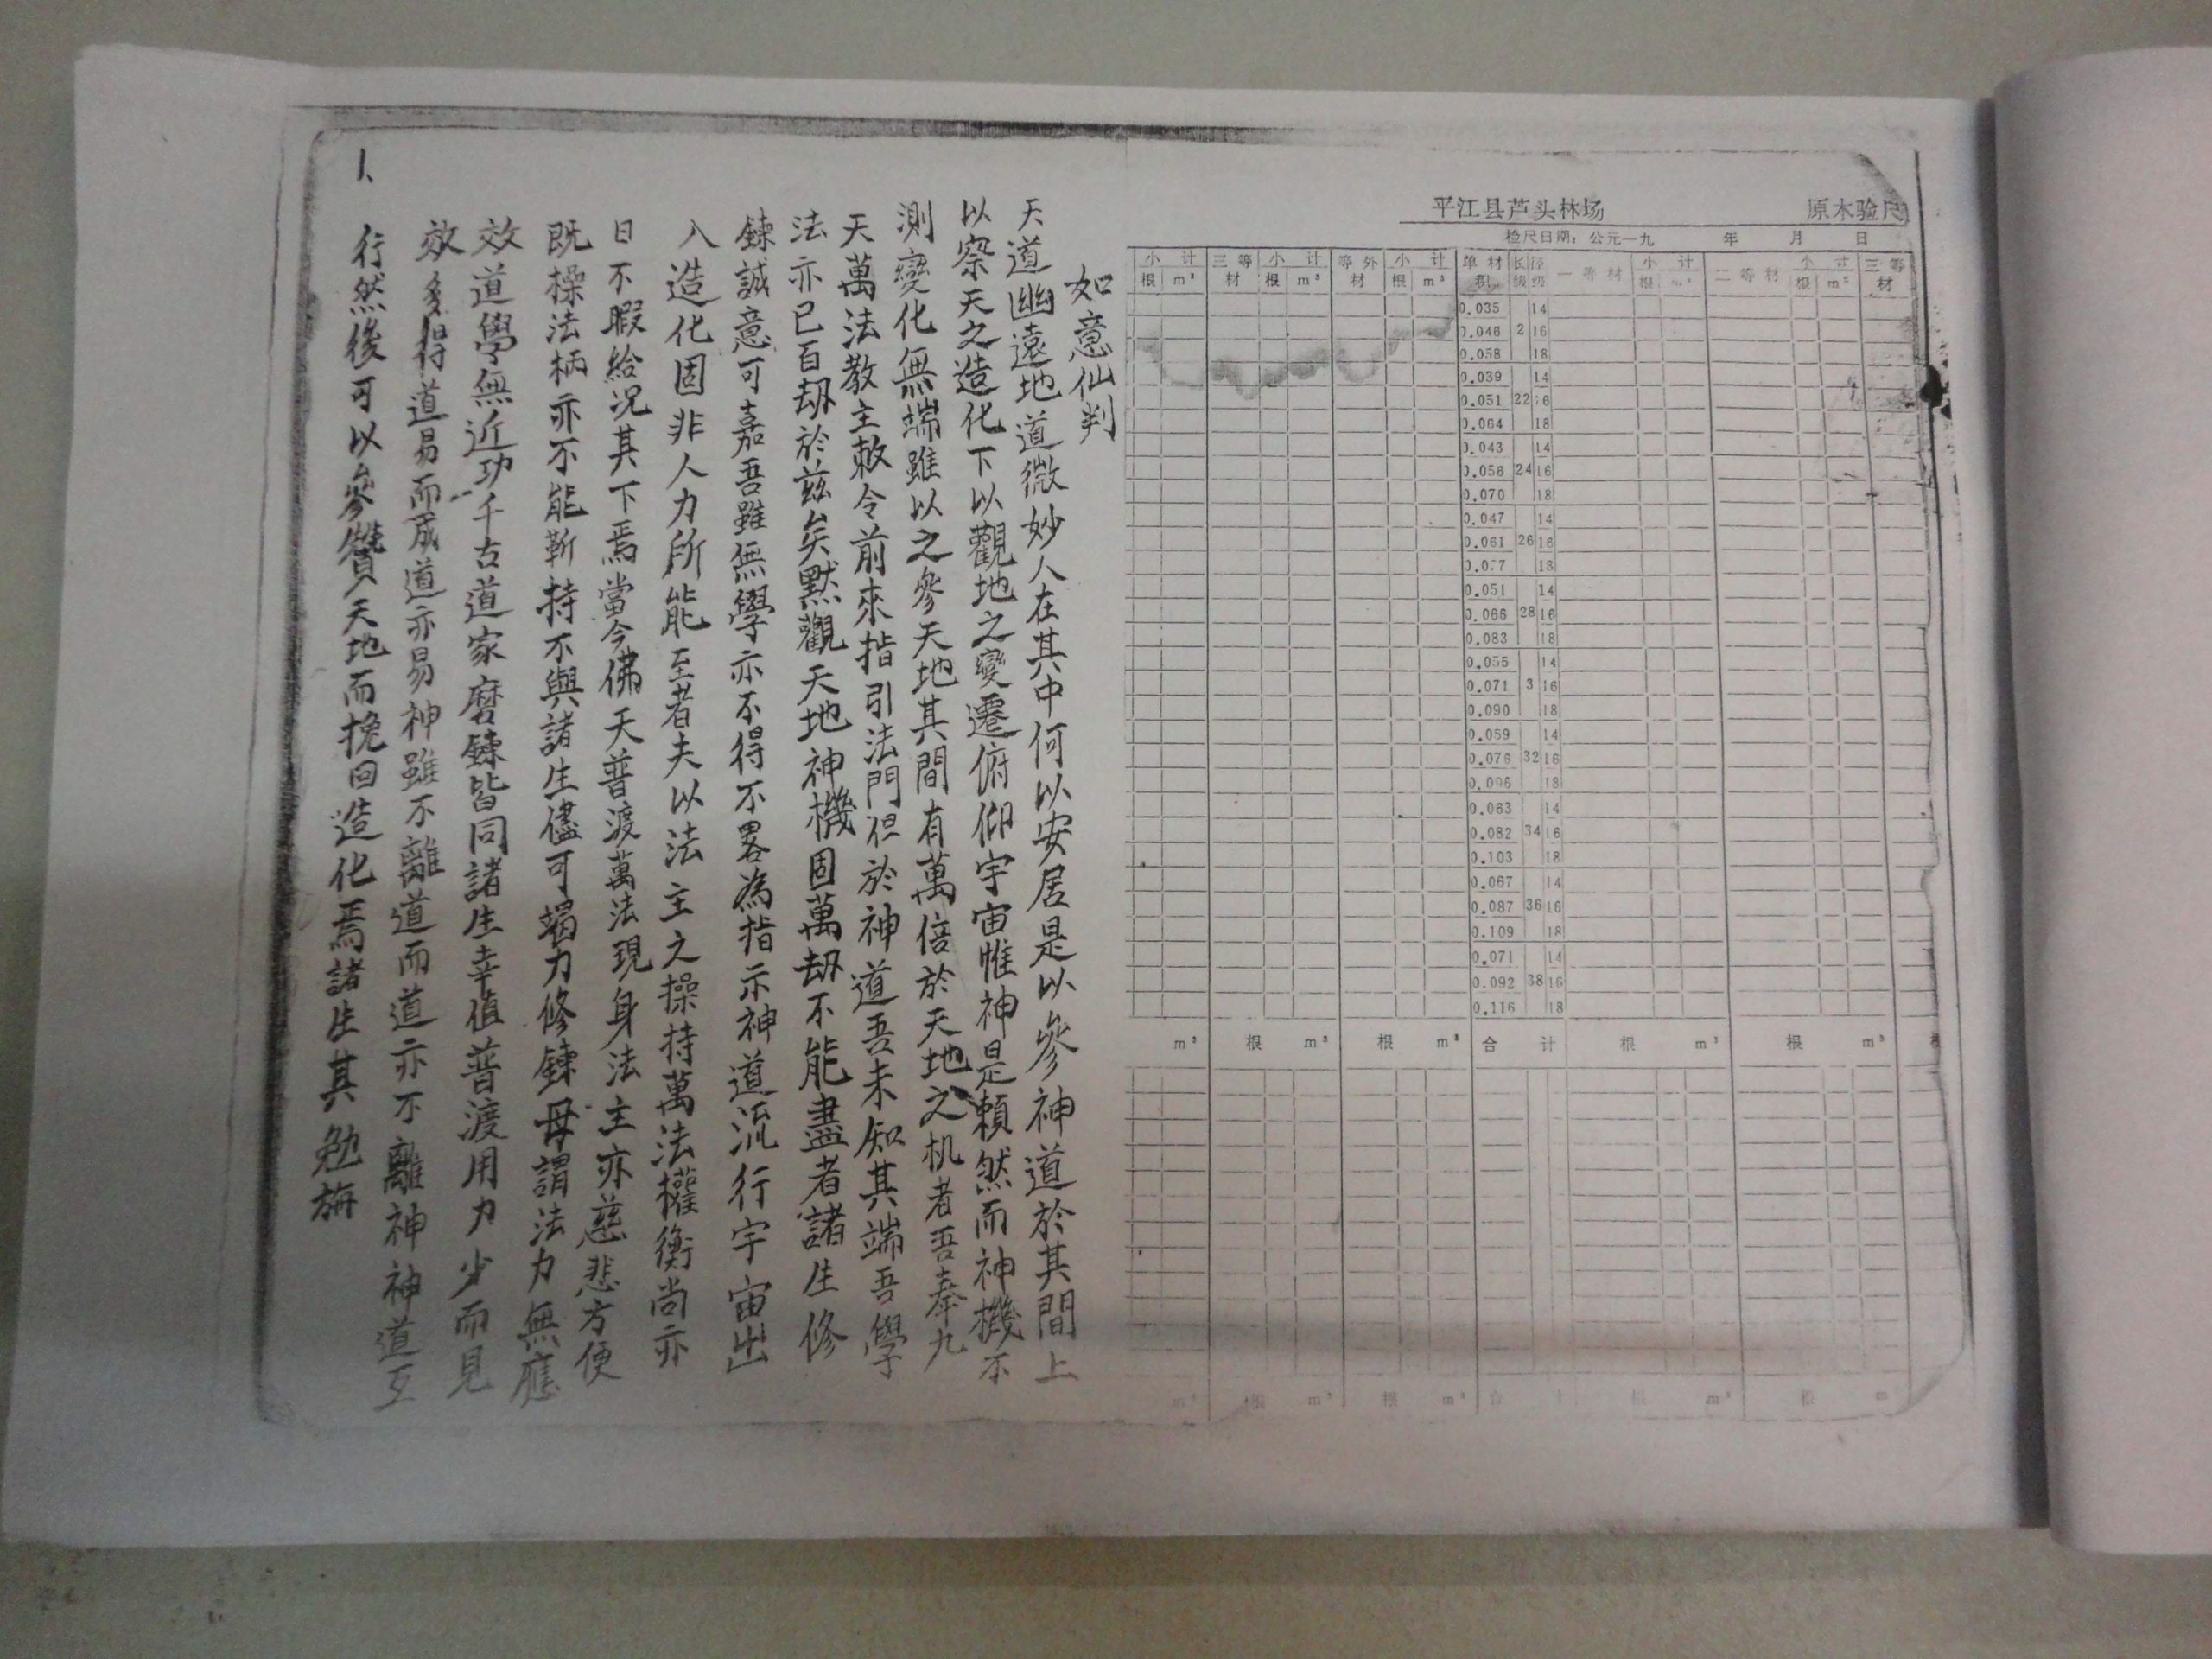 平江县芦头林场 原木验尺
检尺日期：公元一九 年 月 日
小计 三等材 小计 等外材 小计 单材积 长级 径级 一等材 小计 二等材 小计 三等材
根 m³ 根 m³ 根 m³ 根 m³ 根 m³
0.035 14
0.046 2 16
0.058 18
0.039 14
0.051 22 16
0.064 18
0.043 14
0.056 24 16
0.070 18
0.047 14
0.061 26 16
0.077 18
0.051 14
0.066 28 16
0.083 18
0.055 14
0.071 3 16
0.090 18
0.059 14
0.076 32 16
0.096 18
0.063 14
0.082 34 16
0.103 18
0.067 14
0.087 36 16
0.109 18
0.071 14
0.092 38 16
0.116 18
m³ 根 m³ 根 m³ 合计 根 m³ 根 m³ 根
m³ 根 m³ 根 m³ 合计 根 m³ 根 m
如意仙判
天道幽遠地道微妙人在其中何以安居是以參神道於其間上
以察天之造化下以觀地之變遷俯仰宇宙惟神是賴然而神機不
測變化無端雖以之參天地其間有萬倍於天地之机者吾奉九
天萬法教主敕令前來指引法門但於神道吾未知其端吾學
法亦已百劫於茲矣默觀天地神機固萬劫不能盡者諸生修
鍊誠意可嘉吾雖無學亦不得不畧為指示神道流行宇宙出
入造化固非人力所能至者夫以法主之操持萬法權衡尚亦
日不暇給况其下焉當今佛天普渡萬法現身法主亦慈悲方便
既操法柄亦不能靳持不與諸生儘可竭力修鍊毋謂法力無應
效道學無近功千古道家磨鍊皆同諸生幸值普渡用力少而見
效多得道易而成道亦易神雖不離道而道亦不離神神道互
行然後可以參贊天地而挽回造化焉諸生其勉旃
1、